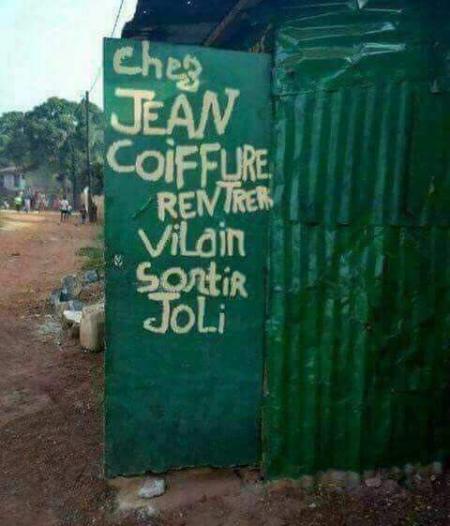 chez
JEAN
COiFFURE
RENTRER
ViLain
Sortir
JoLi